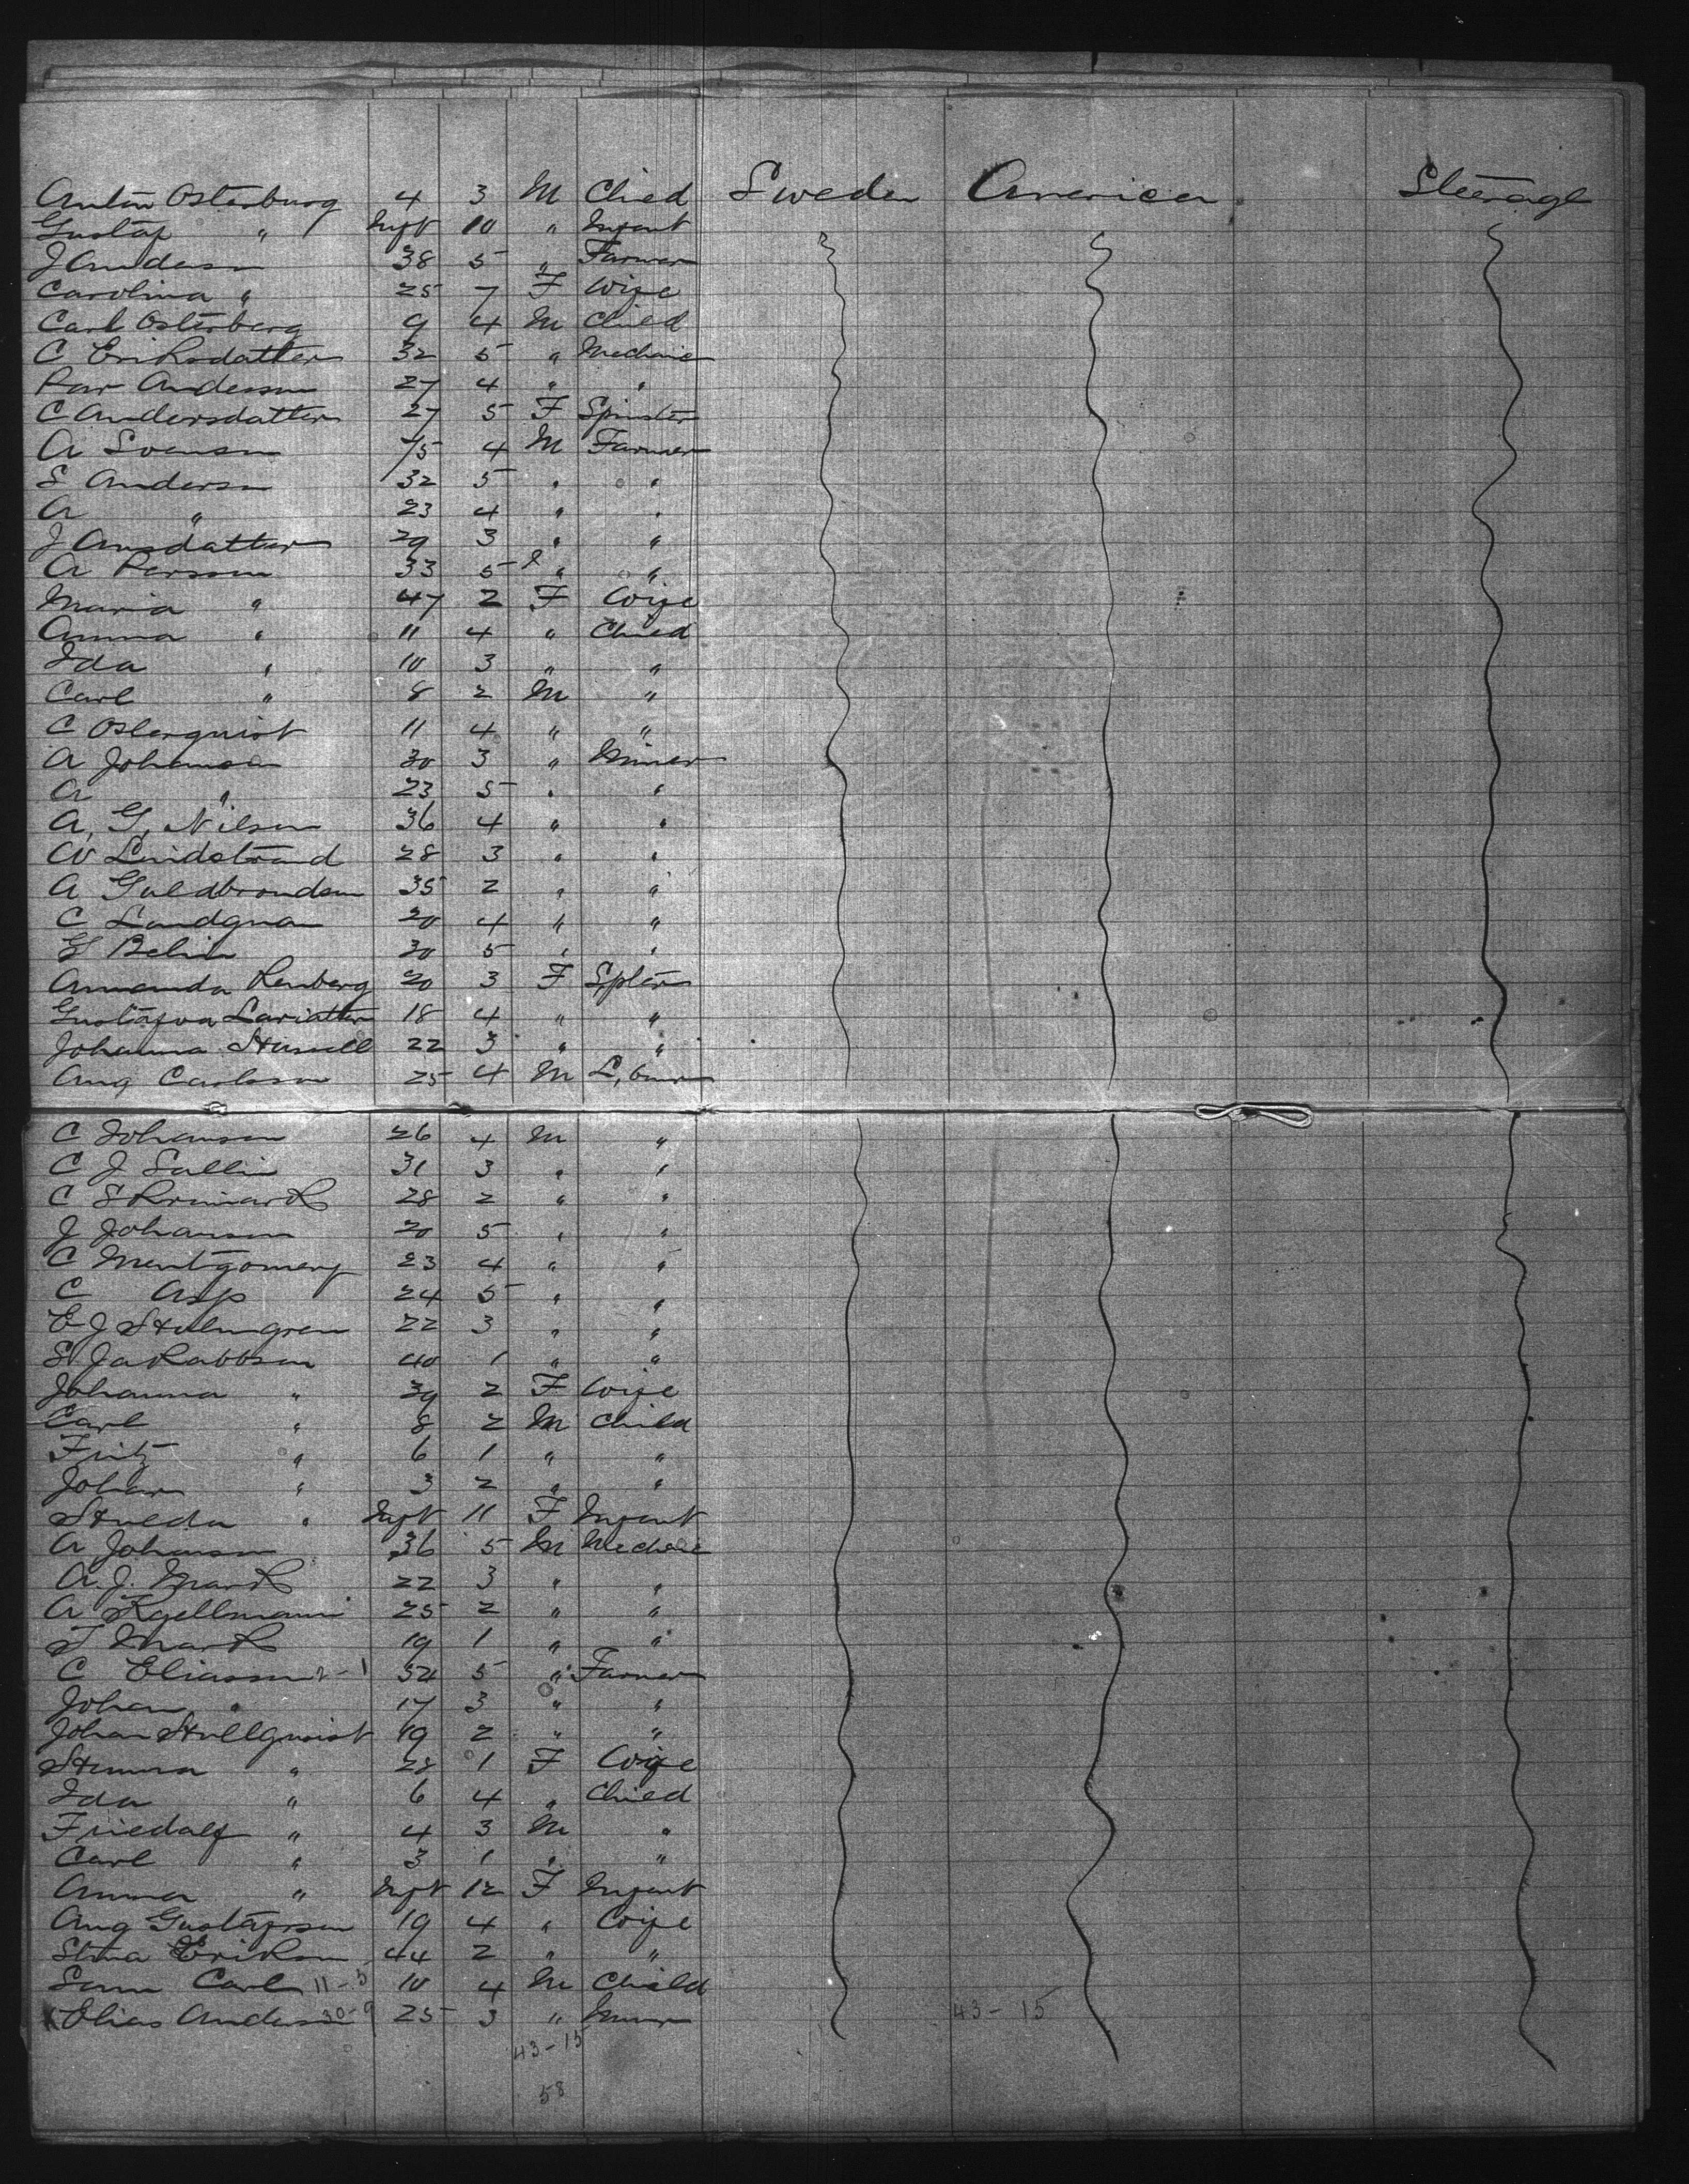 Anton Osterburg 4 3 M Chied Sweden America Steerage
Gustaf " Inft 10 " Infant
J Anderson 38 5 " Farmer
Carolina " 25 7 F Wife
Carl Osterberg 9 4 M Chied
C Eriksdatter 32 5 " Mechanic
Anderson 27 4 " "
C Andersdatter 27 5 F Spinster
A Svenson 4 M Farmer
S Anderson 32 5 " "
A " 23 4 " "
J 29 3 " "
A Persson 33 5 " "
Maria " 47 2 F Wife
Anna " 11 4 " Chied
Ida " 10 3 " "
Carl " 8 2 M "
C Osterquist 11 4 " "
A Johanson 30 3 " Miner
A " 23 5 " "
A. G. Nilson 36 4 " "
W Lindstrand 28 3 " "
A Guldbrandsen 35 2 " "
C Landgren 20 4 " "
G Belin 30 5 " "
Amanda Renberg 20 3 F Spster
Gustafva 18 4 " "
Johanna 22 3 " "
Aug Carlsson 25 4 M
C Johanson 26 4 M "
C J Sallin 31 3 " "
C 28 2 " "
J Johanson 20 5 " "
C Mentgomery 23 4 " "
C Asp 24 5 " "
E J 22 3 " "
S Jakobbson 40 1 " "
Johanna " 39 2 F Wife
Carl " 8 2 M Child
Fritz " 6 1 " "
Johan " 3 2 " "
" Inft 11 F Infant
A Johanson 36 5 M Mechanic
A. J. Mark 22 3 " "
A Kjellmann 25 2 " "
Mark 19 1 " "
C Eliasson 5 " Farmer
Johan " 17 3 " "
Johan 19 2 " "
" 28 1 F Wife
Ida " 6 4 " Chied
Friedalf " 4 3 M "
Carl " 3 1 " "
Anna " Inft 12 F Infant
Aug Gustafsson 19 4 " Wife
Stina Erikson 44 2 " "
Carl 11-5 10 4 M Child
Elias Anderson 30-9 25 3 " Miner 43-15
43-15
58